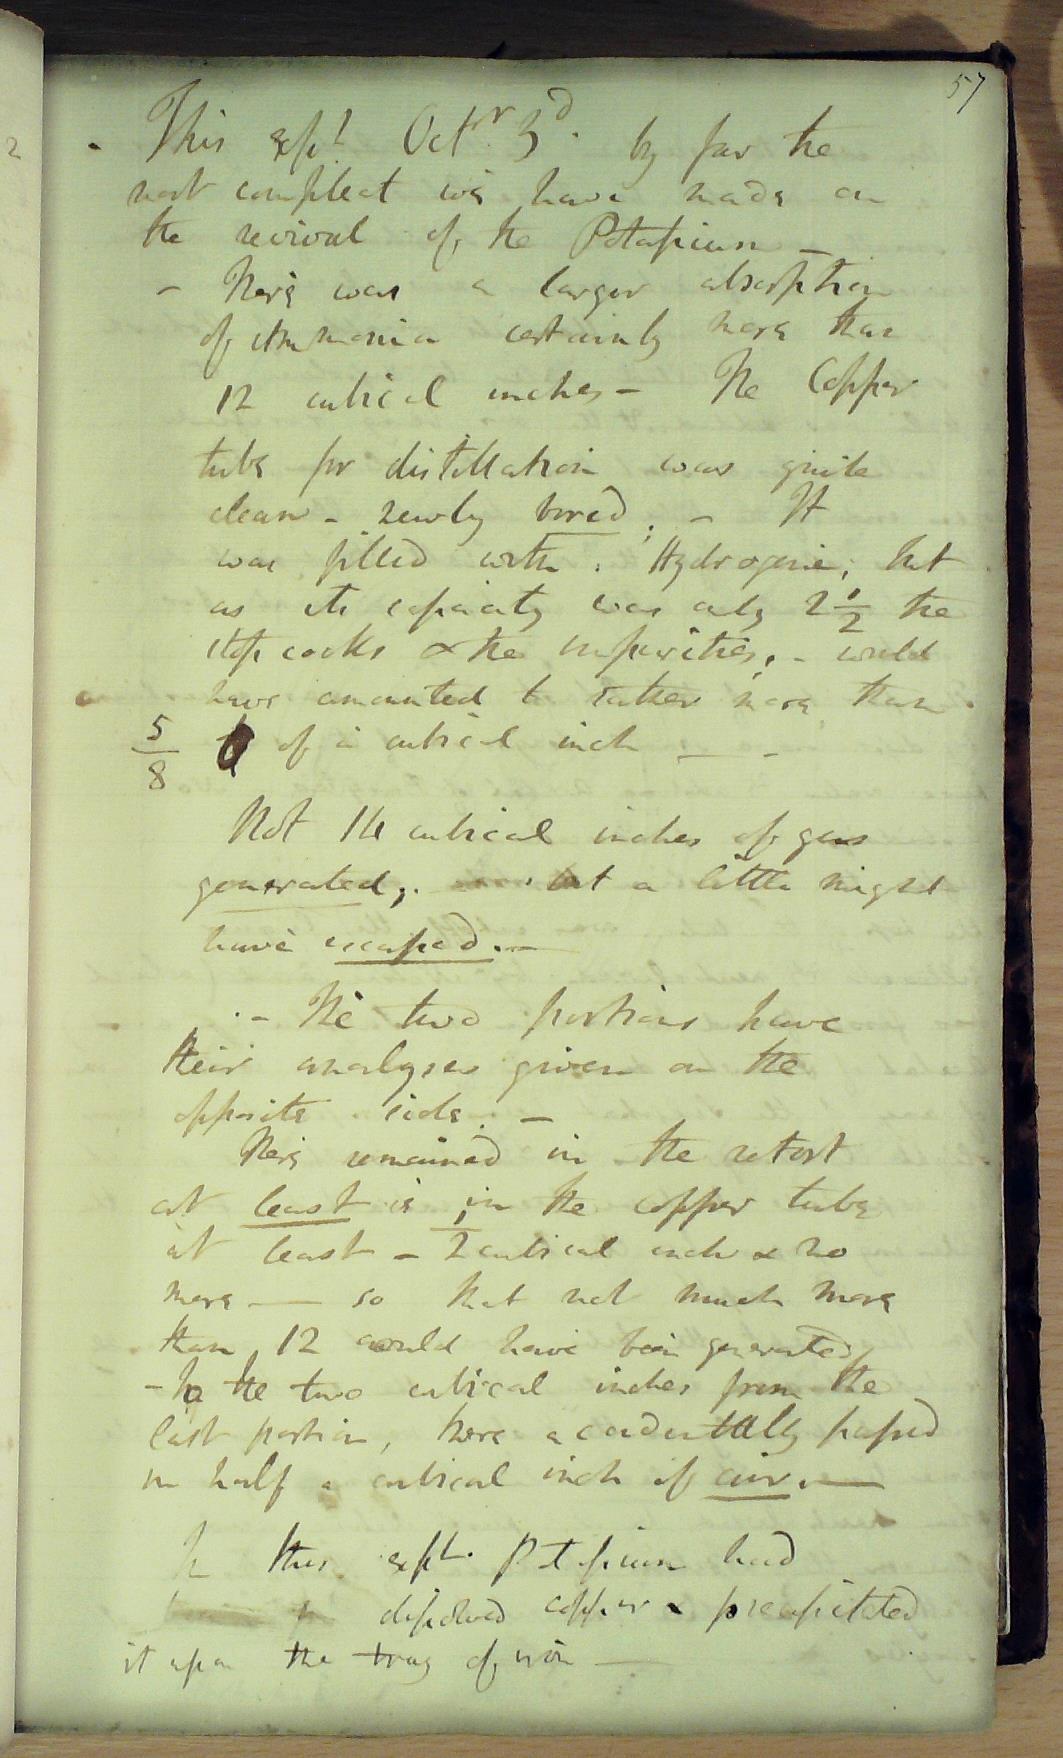 57
This expt Octr 3d. by far the
most compleat we have made on
the revival of the Potassium –
– There was a larger absorption
of Ammonia certainly more than
12 cubical inches – The Copper
tube for distillation was quite
clean – newly bored. – It
was filled with Hydrogene; but
as its capacity was only 2 1/2 the
stop cocks & the impurities, – would
have amounted to rather more than
5/8 of a cubical inch — –
Not 14 cubical inches of gas
generated; but a little might
have escaped. –
– The two portions have
their analyses given on the
opposite side. –
There remained in the retort
at least ie in the copper tube
at least – 1/2 cubical inch & no
more — so that not much more
than 12 could have been generated
– To the two cubical inches from the
last portion, there accidentally passed
in half a cubical inch of air. —
In this expt. Potassium had
dissolved copper & precipitated
it upon the tray of iron —